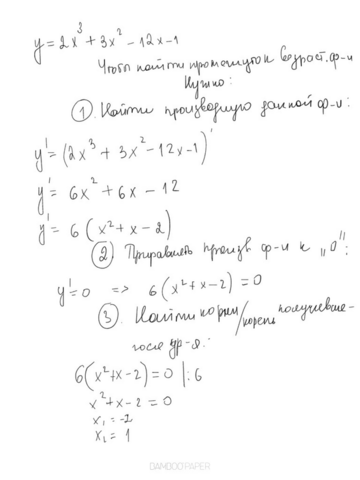 y = 2x³ + 3x² - 12x - 1
Чтобы найти промежуток возраст. ф-и
Нужно:
① Найти производную данной ф-и:
y' = (2x³ + 3x² - 12x - 1)'
y' = 6x² + 6x - 12
y' = 6 (x² + x - 2)
② Приравнять произв. ф-и к „0":
y' = 0 => 6 (x² + x - 2) = 0
③ Найти корни/корень получивше-
гося ур-я:
6(x² + x - 2) = 0 |: 6
x² + x - 2 = 0
x₁ = -2
x₂ = 1